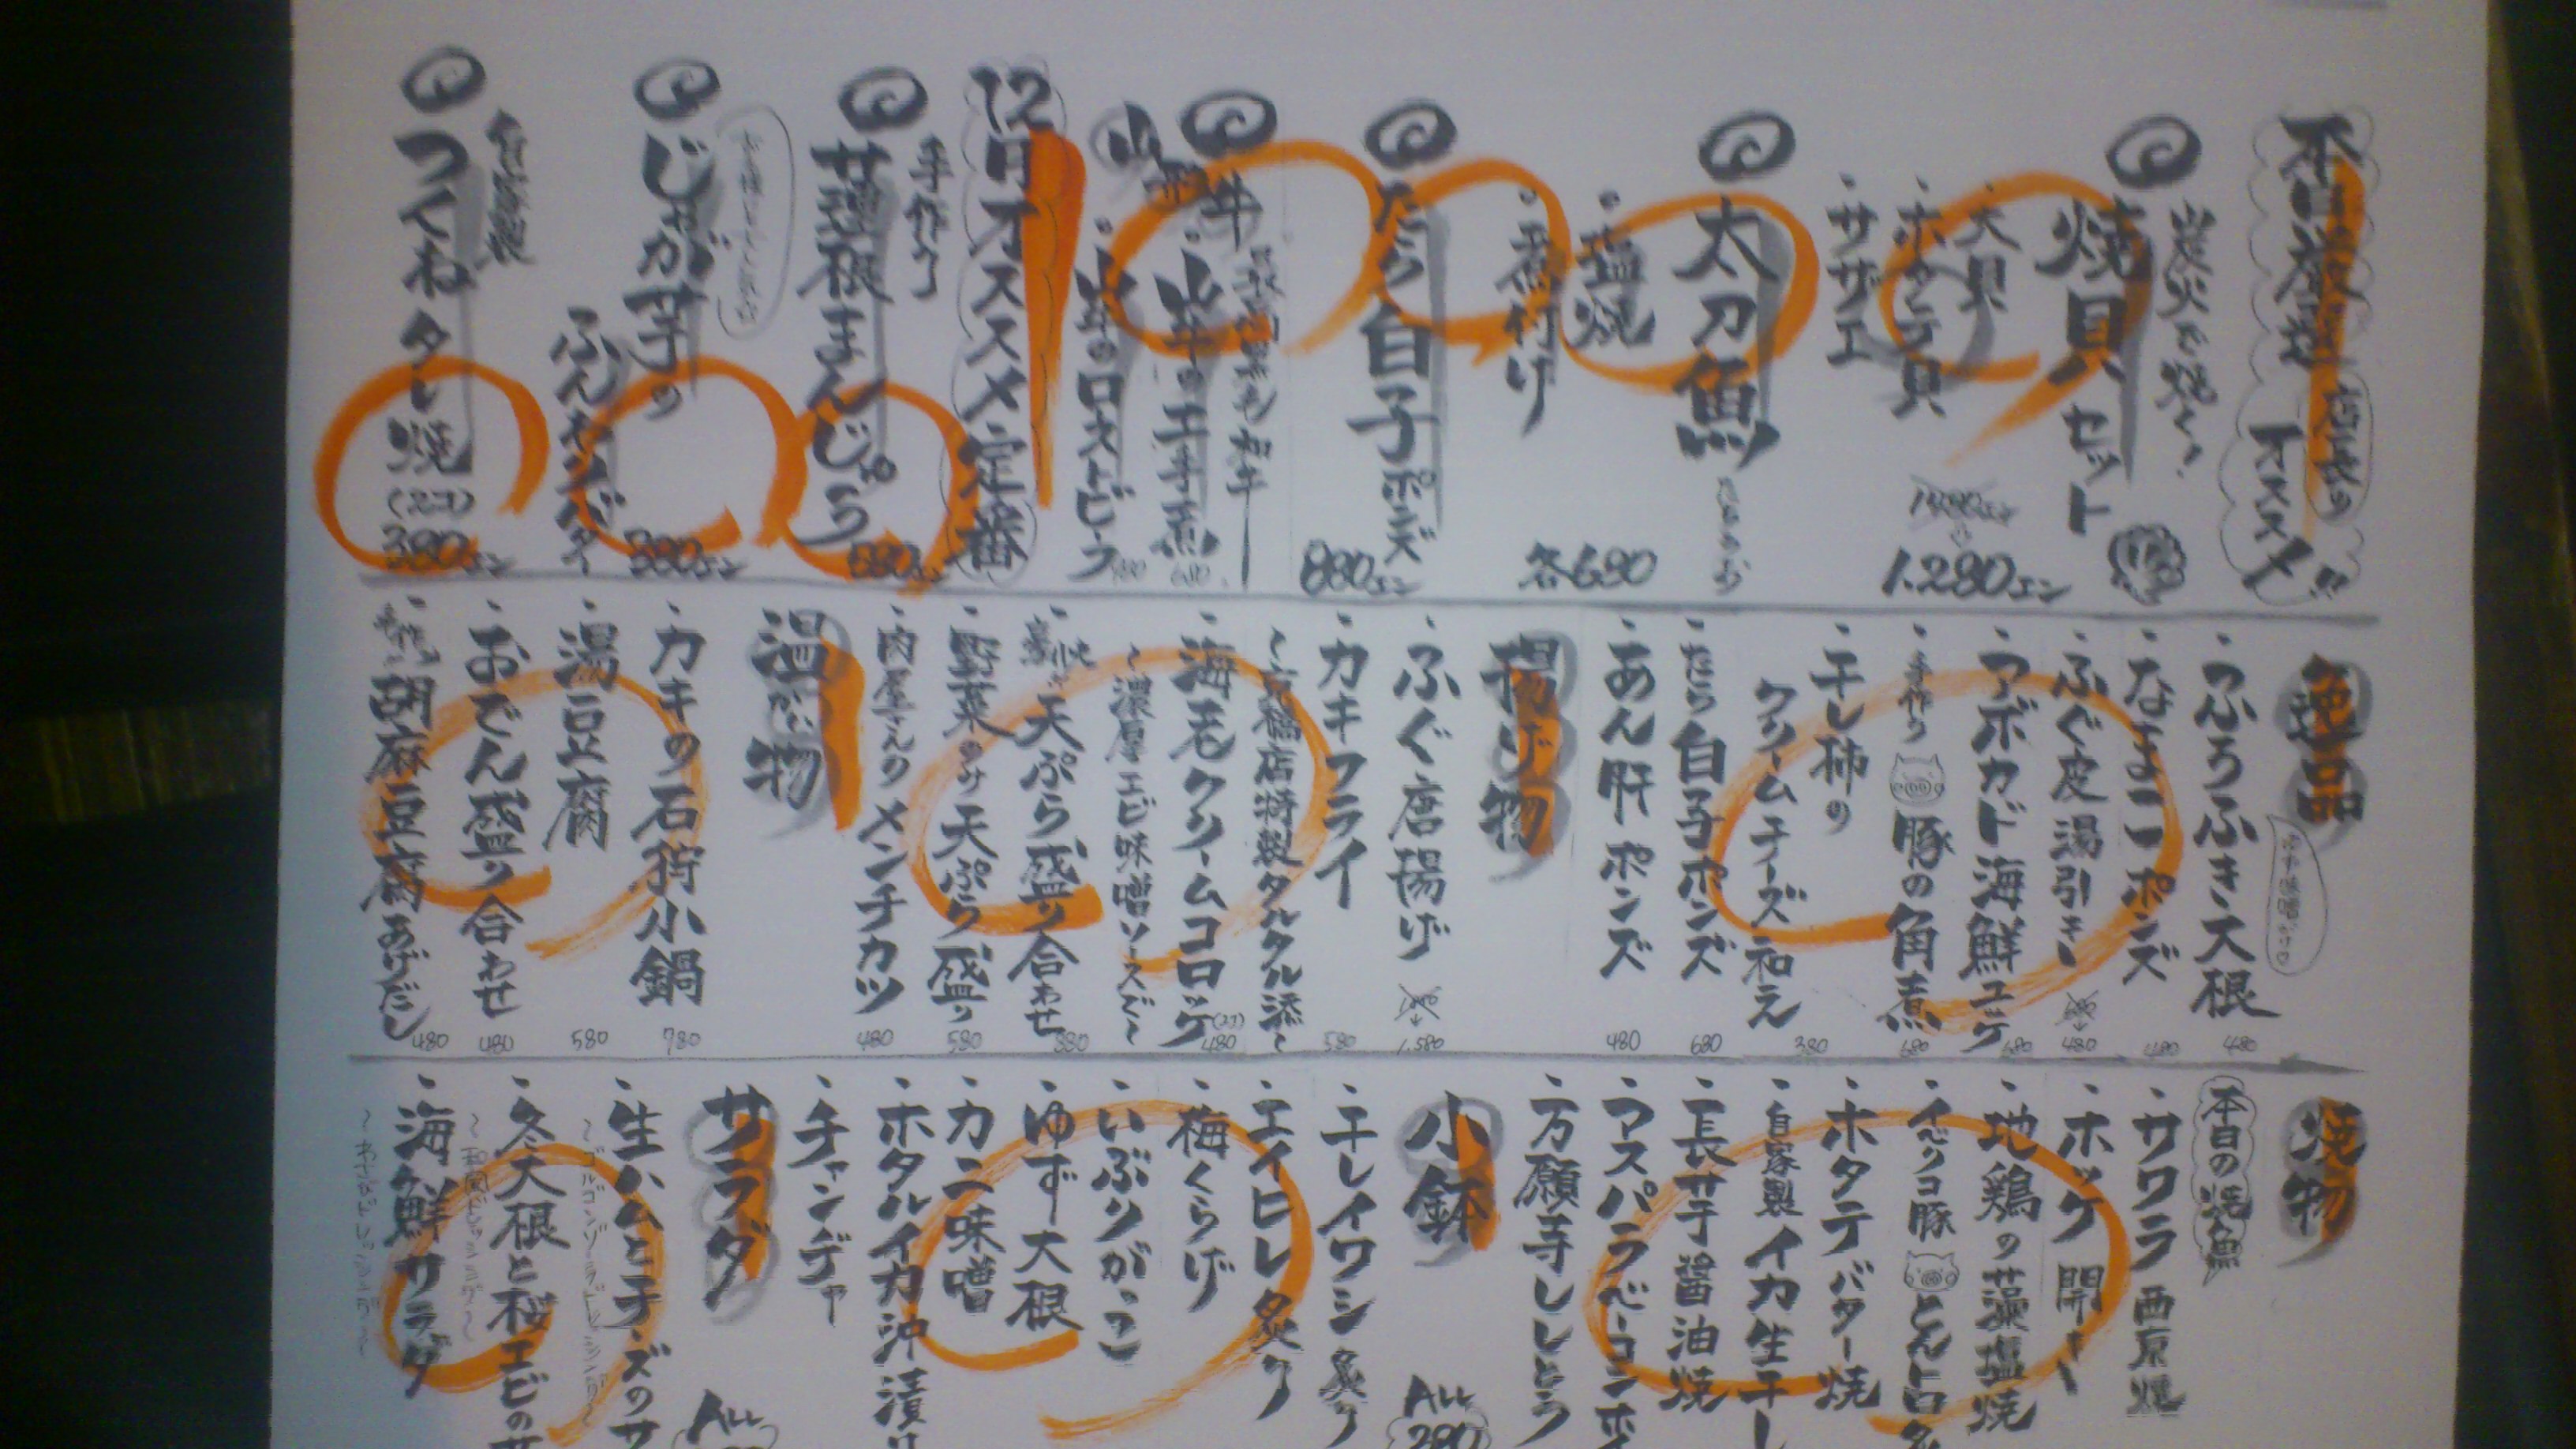 本日厳選 店長のオススメ!!
炭火で焼く!
焼貝セット
・大貝
・ホタテ貝
・サザエ
1,280エン
太刀魚
・塩焼
・煮付け
各680
たら白子ポンズ
880エン
山形牛
・山形牛の牛すじ煮 680
・山形牛のローストビーフ
12月オススメ定番
手作り
蓮根まんじゅう
580エン
じゃが芋の
ふんわりバター
380エン
自家製
つくねタレ焼(2コ)
380エン
逸品
・ふろふき大根 480
ゆず味噌がけ
・なまこポンズ 480
・ふぐ皮湯引き 680→480
・アボカド海鮮ユッケ 680
・手作り豚の角煮 680
・干し柿の
クリームチーズ和え 380
・たら白子ポンズ 680
・あん肝ポンズ 480
揚げ物
・ふぐ唐揚げ 1,580
・カキフライ 580
橋店特製タルタル添〜
・海老クリームコロッケ(2コ) 480
〜濃厚エビ味噌ソースで〜
・豪快天ぷら盛り合わせ 880
・野菜のみ天ぷら盛り 580
・肉屋さんのメンチカツ 480
温かい物
・カキの石狩小鍋 780
・湯豆腐 580
・おでん盛り合わせ 480
・胡麻豆腐あげだし 480
焼物
本日の焼魚
・サワラ西京焼
・ホッケ開き
・地鶏の藻塩焼
・イベリコ豚とんトロ
・ホタテバター焼
・自家製イカ生干し
・長芋醤油焼
・アスパラベーコン
・万願寺ししとう
小鉢
ALL 280
・干しイワシ炙り
・エイヒレ炙り
・梅くらげ
・いぶりがっこ
・ゆず大根
・カニ味噌
・ホタルイカ沖漬け
・チャンヂャ
サラダ
ALL
・生ハムとチーズのサ
〜ゴルゴンゾーラドレッシング〜
・冬大根と桜エビのサ
・海鮮サラダ